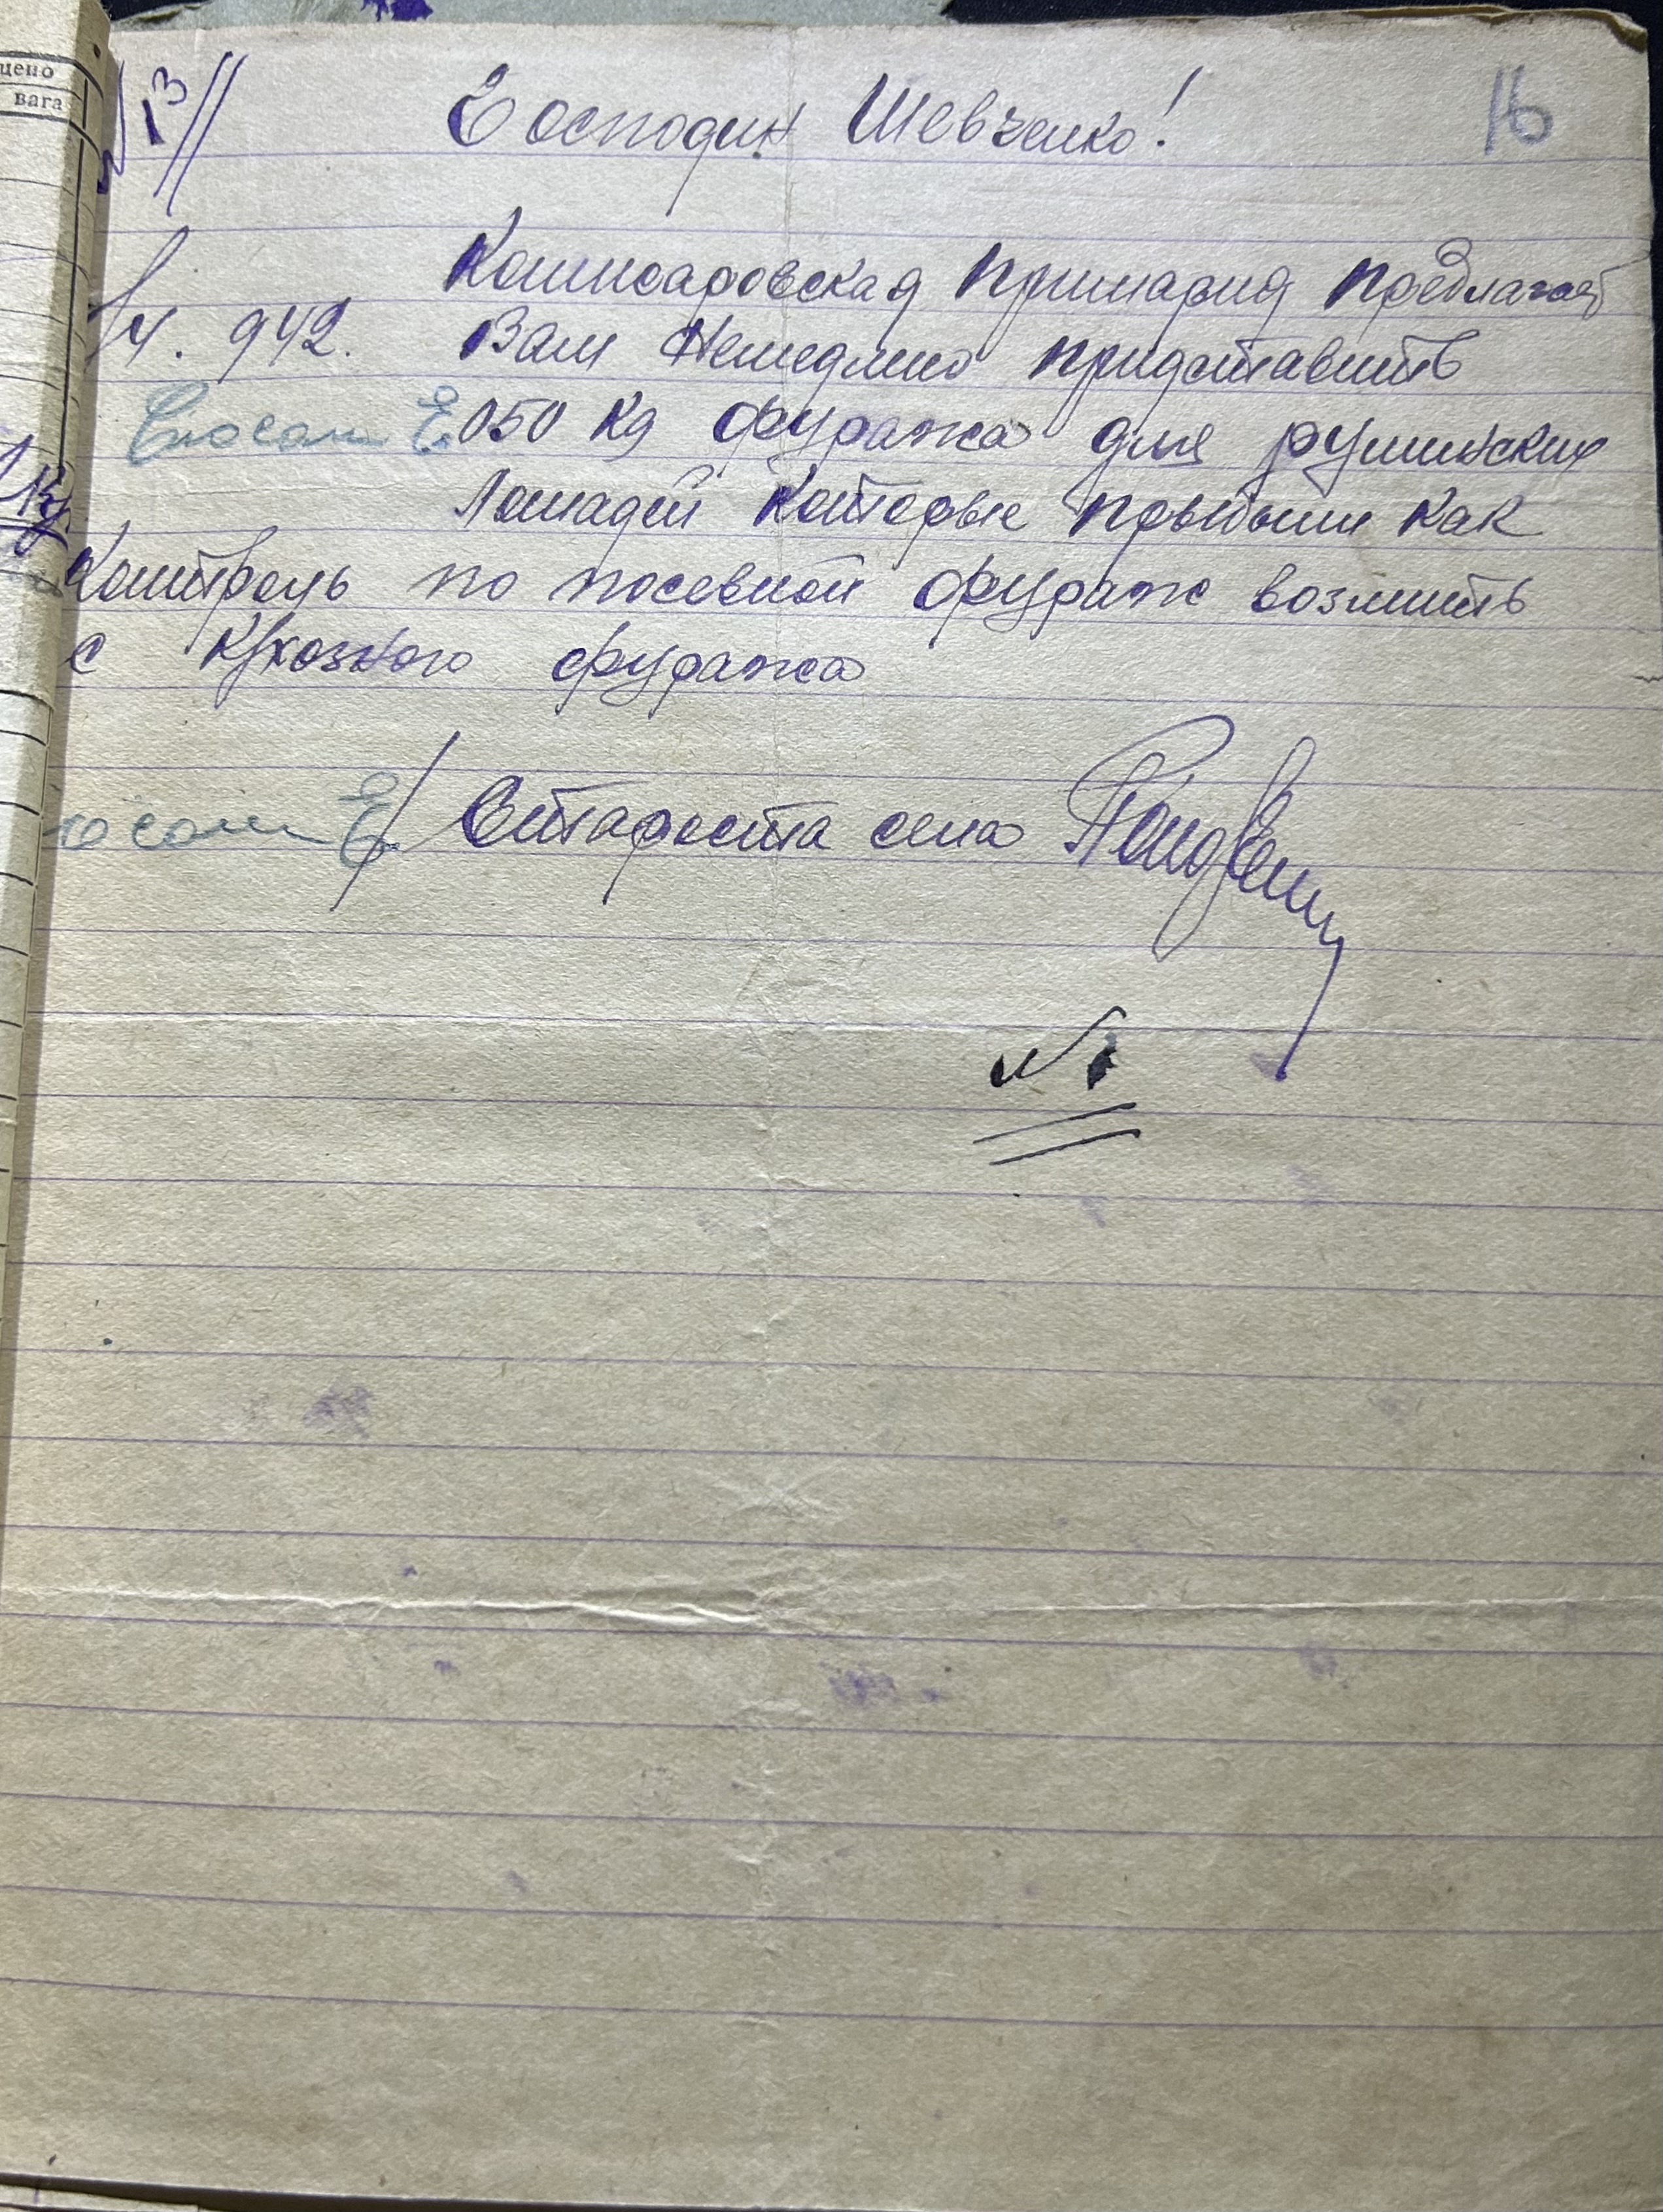 цено
вага
13
Господин Шевченко!
16
Комисаровская примария предлагает
/ч. 942. Вам немедлино придставить
050 кg фуража для руминских
лошадей которые прыбыли как
контроль по посевной фураж возмить
с к/хозного фуража
Староста села
№